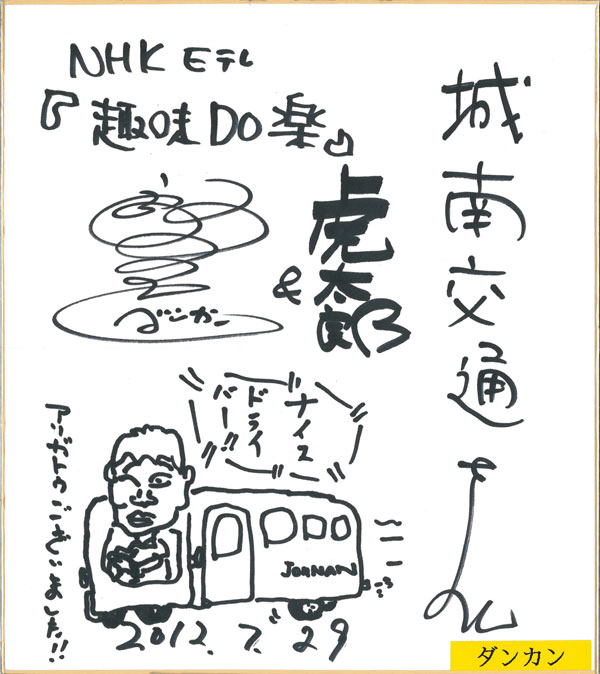 城南交通さん江
NHK Eテレ
『趣味DO楽』
ダンカン
&
虎太郎
ナイス
ドライ
バー!!
JONAN
アリガトウございました!!
2012.7.29
ダンカン